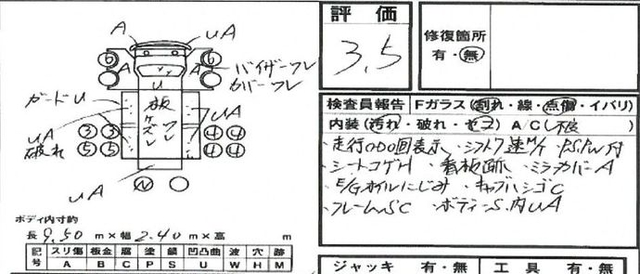 評価
3.5
修復箇所
有・無
A
UA
6
6
A
A
バイザーワレ
カバーワレ
ガードU
U
板
ケズレ
ワレ
UA
UA
破れ
3 3
5 5
4 4
4 4
UA
N
ボディ内寸約
長 9.50 m×幅 2.40 m×高 m
記号
スリ傷 板金 腐 塗 錆 凹凸曲 波 穴 跡
A B C P S U W H M
検査員報告 Fガラス(割れ・線・点傷・イバリ)
内装(汚れ・破れ・ ) A/C(不良)
・走行0000回表示 ・シフト7速M/T ・P.S,P.W付
・シートコゲH ・看板跡 ・ミラーカバーA
・E/Gオイルにじみ ・キャブハシゴC
・フレームSC ・ボディーS.内UA
ジャッキ 有・無 工具 有・無